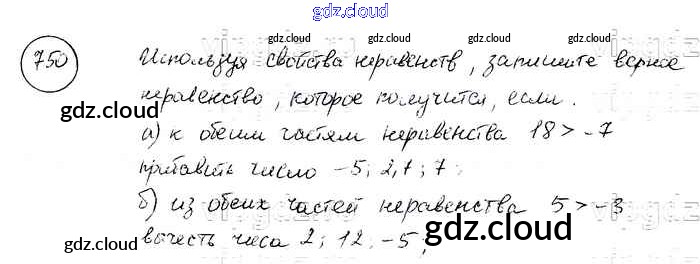 gdz.cloud
gdz.cloud gdz.cloud gdz.cloud
750 Используя свойства неравенств, запишите верное
неравенство, которое получится, если.
gdz.cloud gdz.cloud
а) к обеим частям неравенства 18 > -7
прибавить число -5; 2,7; 7;
gdz.cloud gdz.cloud
б) из обеих частей неравенства 5 > -3
gdz.cloud gdz.cloud gdz.cloud
вычесть числа 2; 12; -5;